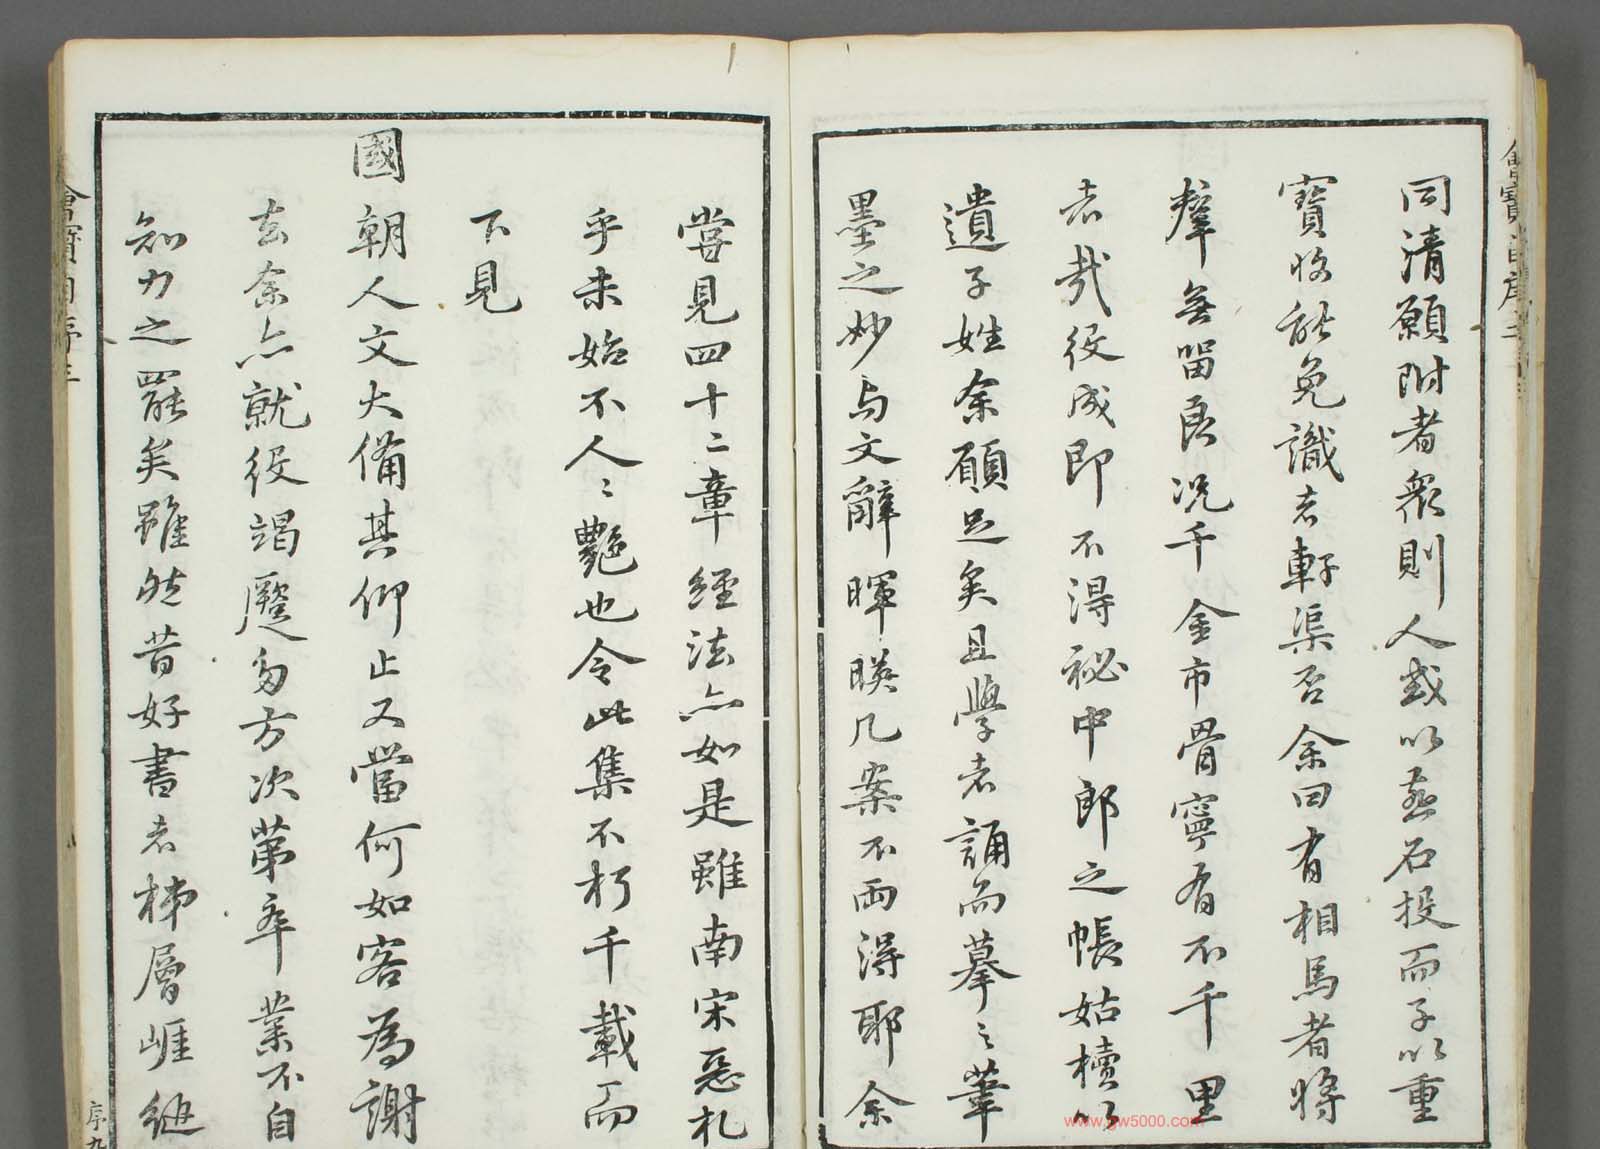 同清願附者衆則人或以燕石投而子以重
寶收能免識者軒渠否余曰有相馬者將
羣無留良況千金市骨寧有不千里
者哉役成即不得祕中郎之帳姑櫝以
遺子姓余願足矣且學者誦而摹之筆
墨之妙与文辭暉暎几案不兩得耶余
嘗見四十二章經法亦如是雖南宋惡札
乎未始不人人艷也令此集不朽千載而
下見
國朝人文大備其仰止又當何如客為謝
去余亦就役竭蹷多方次第卒業不自
知力之罷矣雖然昔好書者梯層崖縋
序九
www.gw5000.com